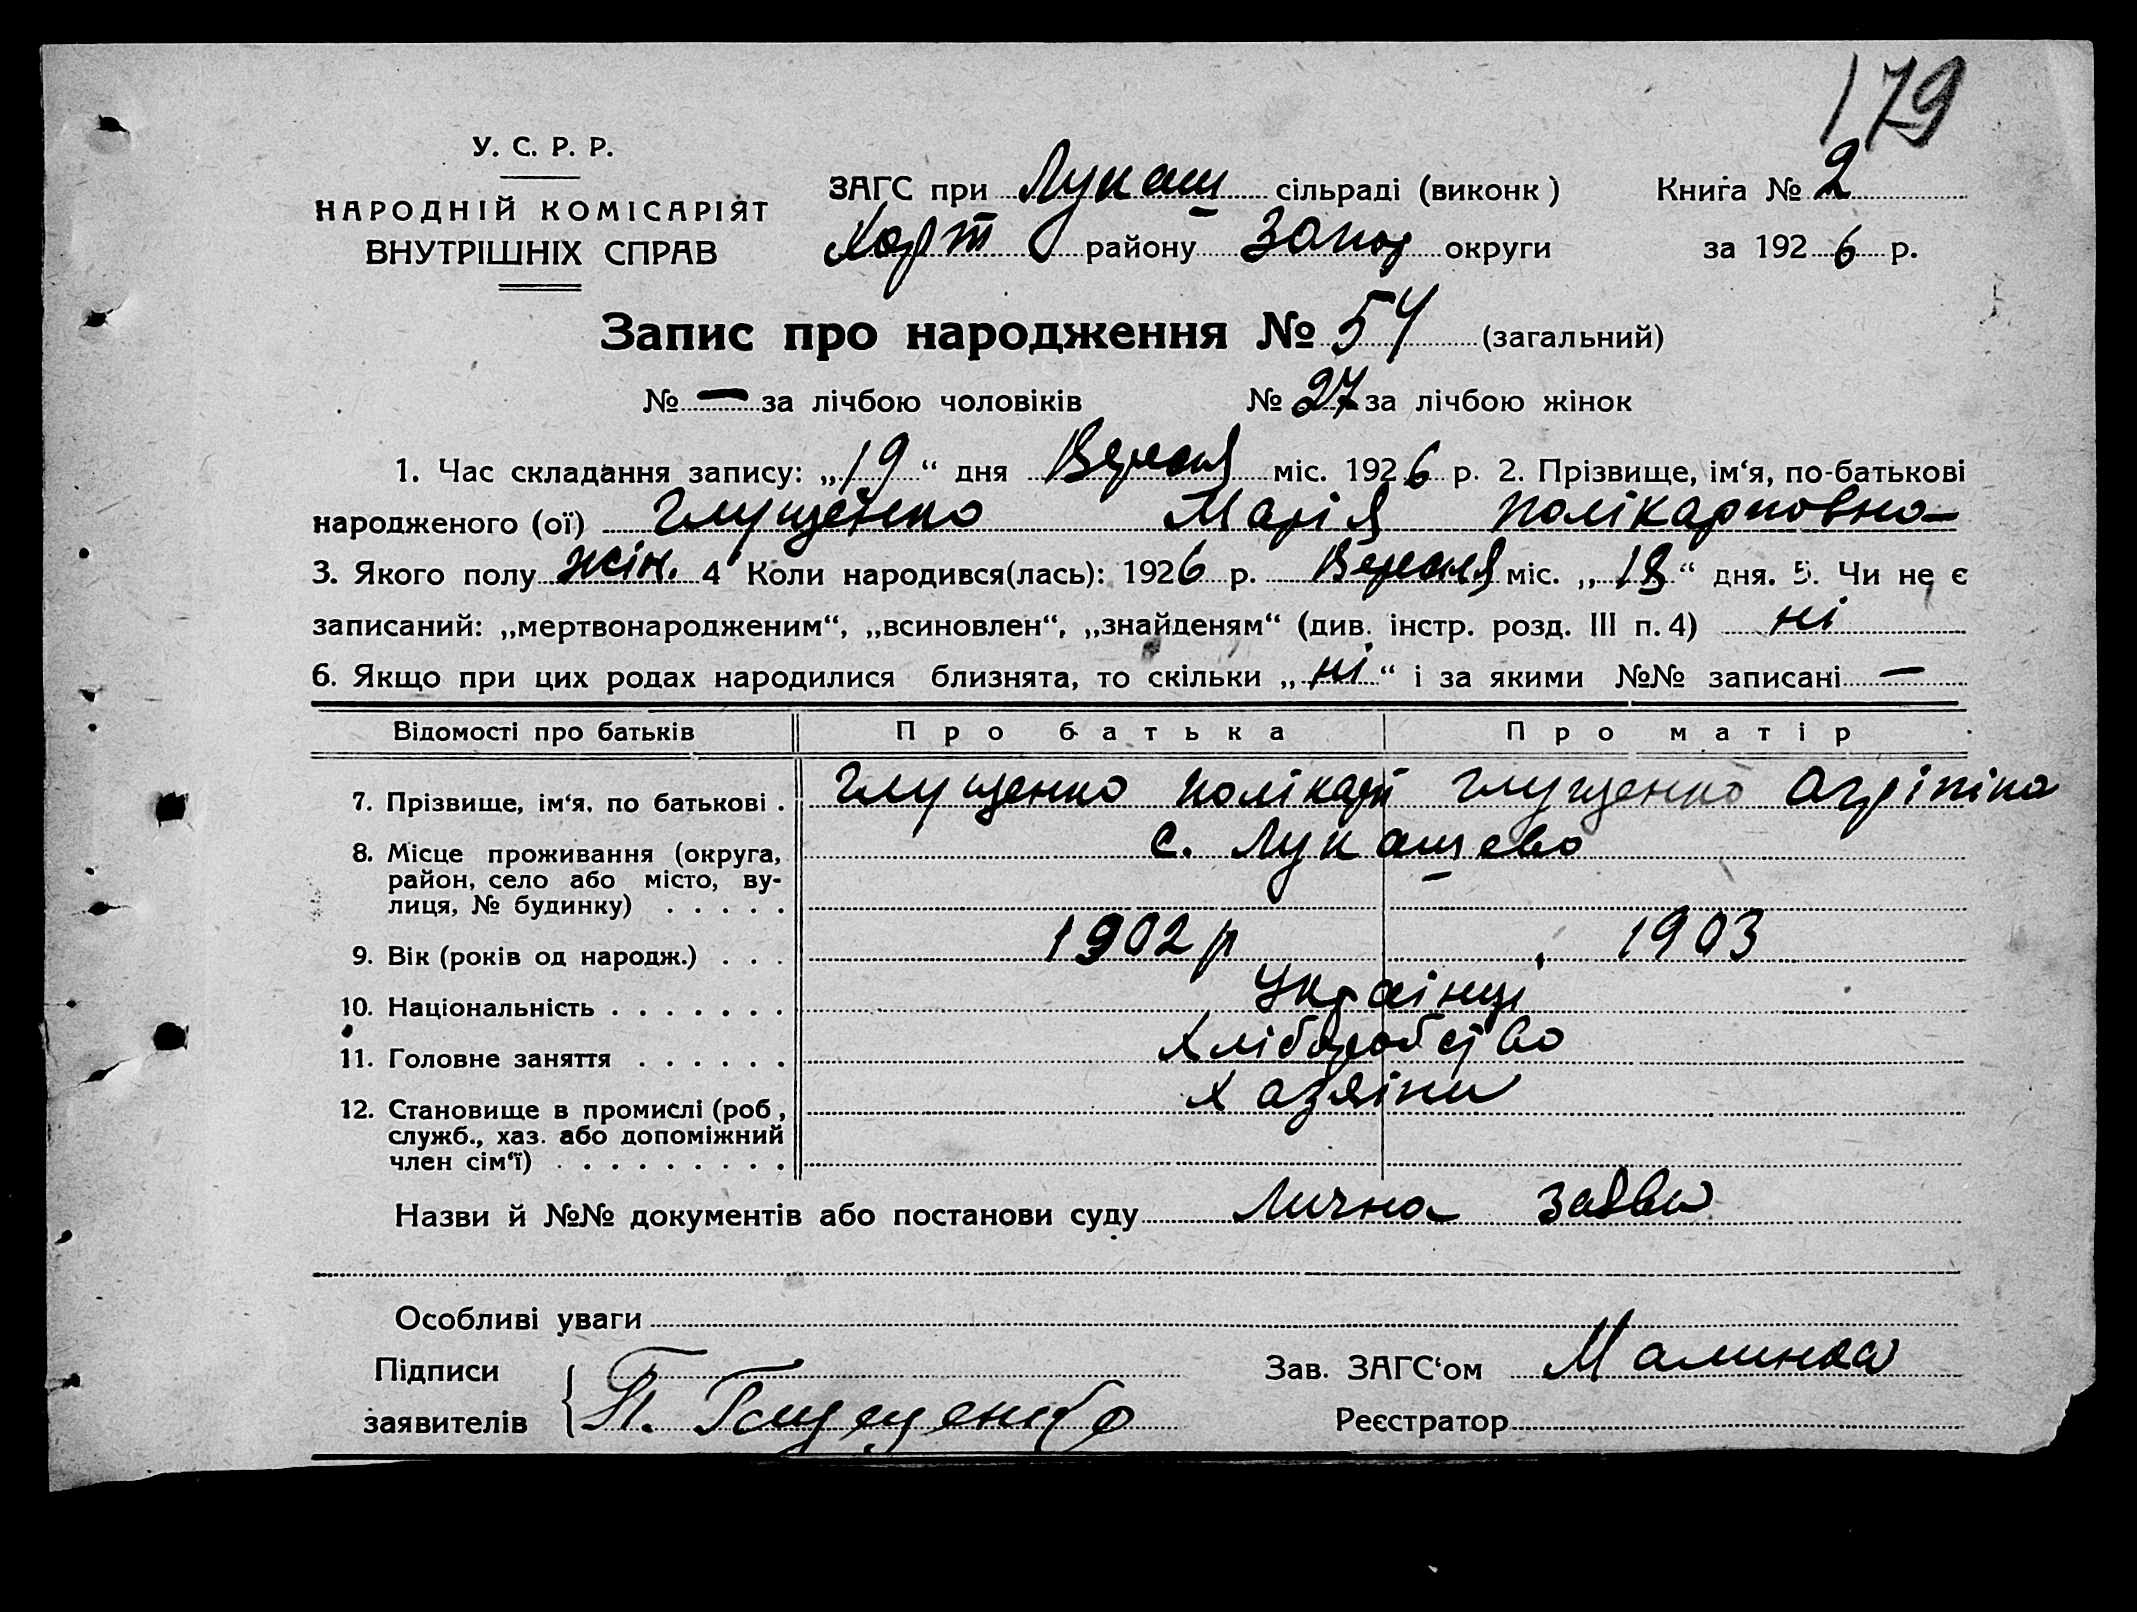 179
У. С. Р. Р.
НАРОДНІЙ КОМІСАРІЯТ
ВНУТРІШНІХ СПРАВ
ЗАГС при Лукаш сільраді (виконк)
Хорт району Запор округи
Книга № 2
за 1926 р.
Запис про народження № 54 (загальний)
№ — за лічбою чоловіків № 27 за лічбою жінок
1. Час складання запису: „19“ дня Вересня міс. 1926 р. 2. Прізвище, ім‘я, по-батькові
народженого (ої) Глущенко Марія Полікарповна
3. Якого полу жін. 4 Коли народився(лась): 1926 р. Вересня міс. „18“ дня. 5. Чи не є
записаний: „мертвонародженим“, „всиновлен“, „знайденям“ (див. інстр. розд. III п. 4) ні
6. Якщо при цих родах народилися близнята, то скільки „ні“ і за якими №№ записані —
Відомості про батьків Про батька Про матір
7. Прізвище, ім‘я, по батькові . Глущенко Полікарп Глущенко Агріпіна
8. Місце проживання (округа, с. Лукашево
район, село або місто, ву-
лиця, № будинку) . . . . .
9. Вік (років од народж.) . . . 1902 р 1903
10. Національність . . . . . . . Українці
11. Головне заняття . . . . . . Хліборобство
12. Становище в промислі (роб., Хазяіни
служб., хаз. або допоміжний
член сім‘ї) . . . . . . . . .
Назви й №№ документів або постанови суду Лична заява
Особливі уваги
Підписи
заявителів П. Глущенко
Зав. ЗАГС‘ом Малинка
Реєстратор